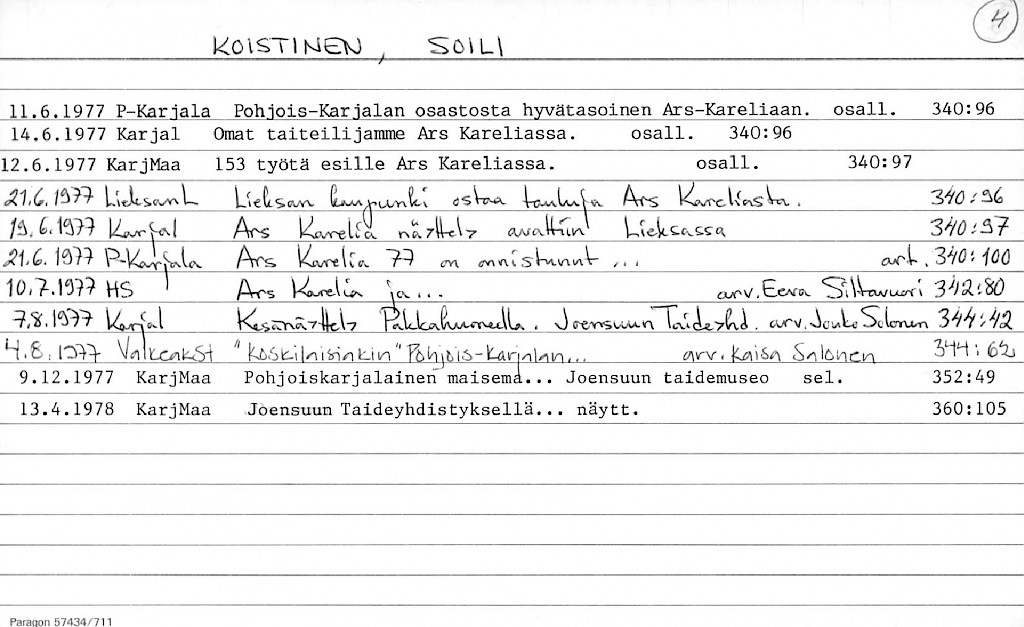 4
KOISTINEN, SOILI
11.6.1977 P-Karjala Pohjois-Karjalan osastosta hyvätasoinen Ars-Kareliaan. osall. 340:96
14.6.1977 Karjal Omat taiteilijamme Ars Kareliassa. osall. 340:96
12.6.1977 KarjMaa 153 työtä esille Ars Kareliassa. osall. 340:97
21.6.1977 LieksanL Lieksan kaupunki ostaa tauluja Ars Kareliasta. 340:96
19.6.1977 Karjal Ars Karelia näyttely avattiin Lieksassa 340:97
21.6.1977 P-Karjala Ars Karelia 77 on onnistunut ... art. 340:100
10.7.1977 HS Ars Karelia ja... arv. Eeva Siltavuori 342:80
7.8.1977 Karjal Kesänäyttely Pakkahuoneella. Joensuun Taideyhd. arv. Jouko Solonen 344:42
4.8.1977 ValkeakSt "Koskilaisinkin" Pohjois-Karjalan... arv. Kaisa Salonen 344:62
9.12.1977 KarjMaa Pohjoiskarjalainen maisema... Joensuun taidemuseo sel. 352:49
13.4.1978 KarjMaa Joensuun Taideyhdistyksellä... näytt. 360:105
Paragon 57434/711